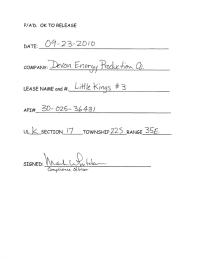 P/A'D. OK TO RELEASE
DATE: 09-23-2010
COMPANY: Devon Energy Production Co.
LEASE NAME and #. Little Kings #3
API# 30-025-36431
UL K SECTION 17 TOWNSHIP 22S RANGE 35E
SIGNED:
Compliance Officer